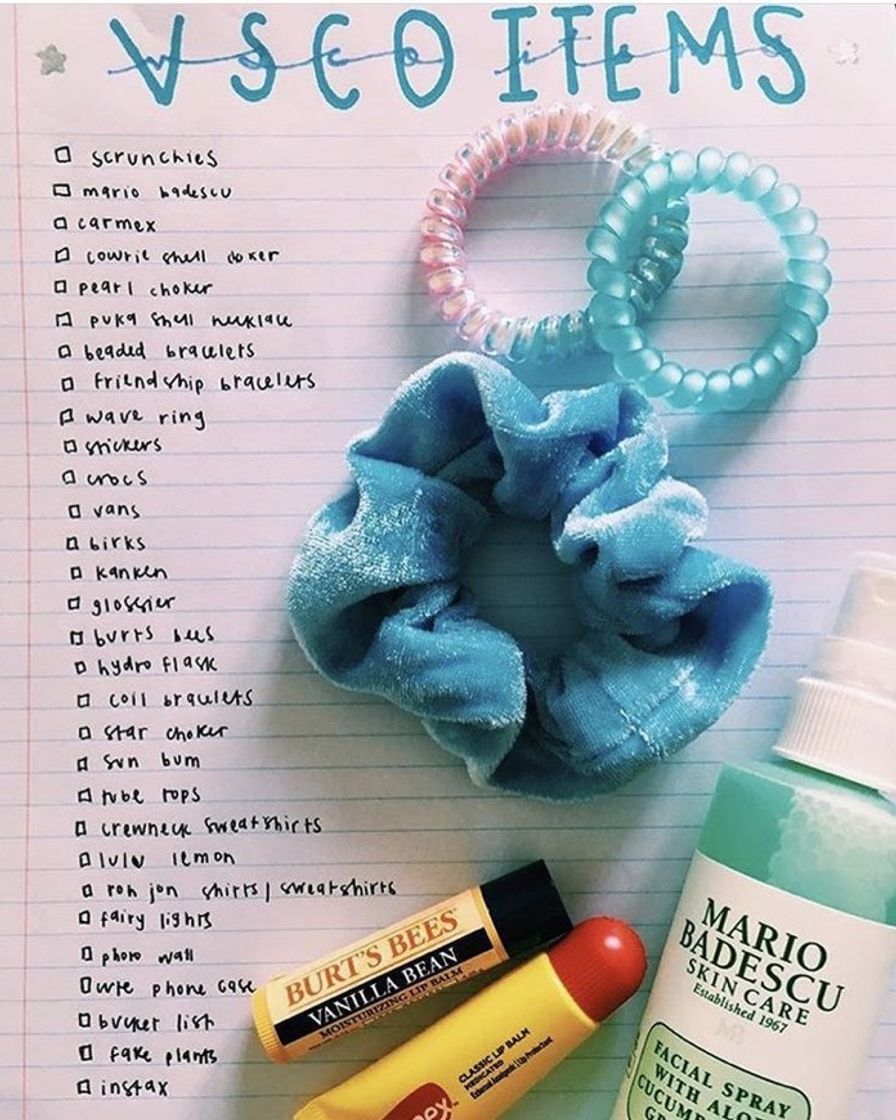 VSCO ITEMS
vsco items
☐ scrunchies
☐ mario badescu
☐ carmex
☐ cowrie shell coker
☐ pearl choker
☐ puka shell necklace
☐ beaded bracelets
☐ friendship bracelets
☐ wave ring
☐ stickers
☐ crocs
☐ vans
☐ birks
☐ kanken
☐ glossier
☐ burts bees
☐ hydro flask
☐ coil bracelets
☐ star choker
☐ sun bum
☐ tube tops
☐ crewneck sweatshirts
☐ lulu lemon
☐ ron jon shirts / sweatshirts
☐ fairy lights
☐ photo wall
☐ cute phone case
☐ bucket list
☐ fake plants
☐ instax
BURT'S BEES
VANILLA BEAN
MOISTURIZING LIP BALM
CLASSIC LIP BALM
MEDICATED
External Analgesic | Lip Protectant
mex
MARIO
BADESCU
SKIN CARE
Established 1967
MB
FACIAL SPRAY
WITH ALO
CUCUM
GR